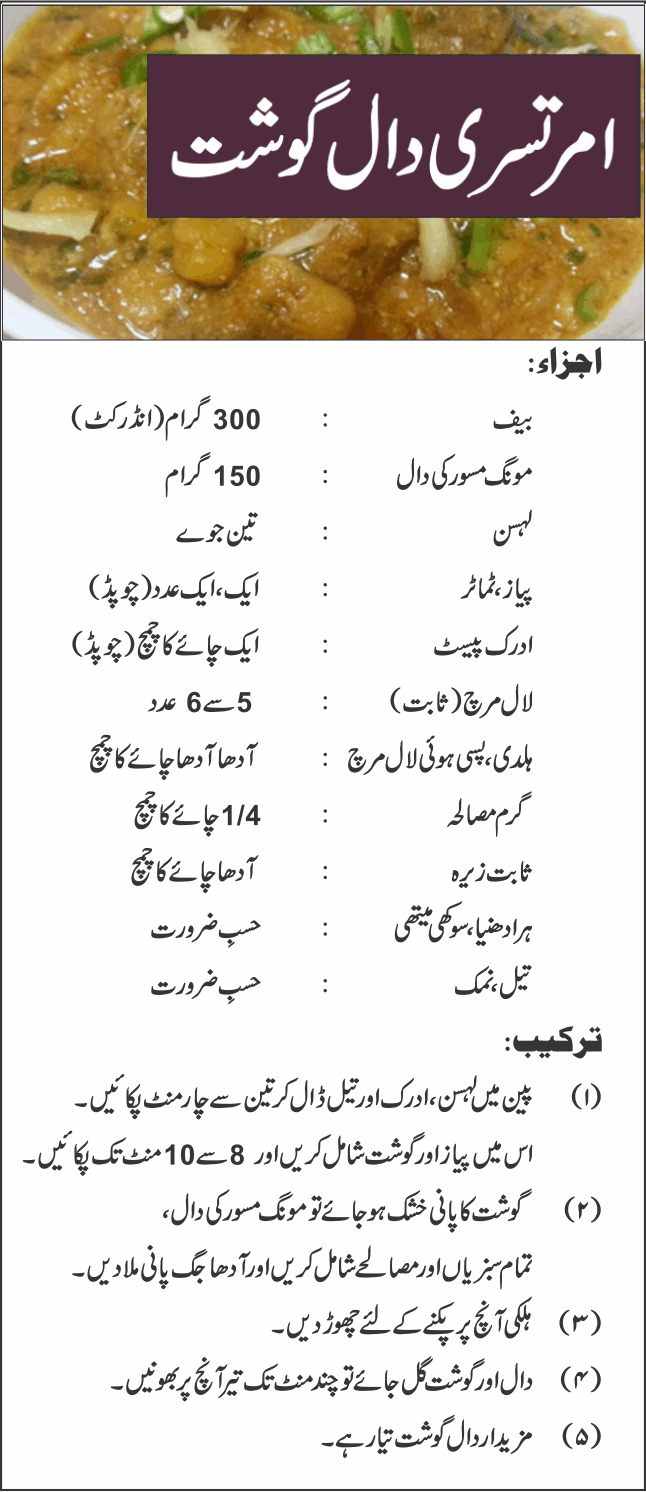 امرتسری دال گوشت
اجزاء:
بیف : 300 گرام (انڈرکٹ)
مونگ مسور کی دال : 150 گرام
لہسن : تین جوے
پیاز، ٹماٹر : ایک، ایک عدد (چوپڈ)
ادرک پیسٹ : ایک چائے کا چمچ (چوپڈ)
لال مرچ (ثابت) : 5 سے 6 عدد
ہلدی، پسی ہوئی لال مرچ : آدھا آدھا چائے کا چمچ
گرم مصالحہ : 1/4 چائے کا چمچ
ثابت زیرہ : آدھا چائے کا چمچ
ہرا دھنیا، سوکھی میتھی : حسبِ ضرورت
تیل، نمک : حسبِ ضرورت
ترکیب:
(۱) پین میں لہسن، ادرک اور تیل ڈال کر تین سے چار منٹ پکائیں۔
اس میں پیاز اور گوشت شامل کریں اور 8 سے 10 منٹ تک پکائیں۔
(۲) گوشت کا پانی خشک ہو جائے تو مونگ مسور کی دال،
تمام سبزیاں اور مصالحے شامل کریں اور آدھا جگ پانی ملا دیں۔
(۳) ہلکی آنچ پر پکنے کے لئے چھوڑ دیں۔
(۴) دال اور گوشت گل جائے تو چند منٹ تک تیز آنچ پر بھونیں۔
(۵) مزیدار دال گوشت تیار ہے۔